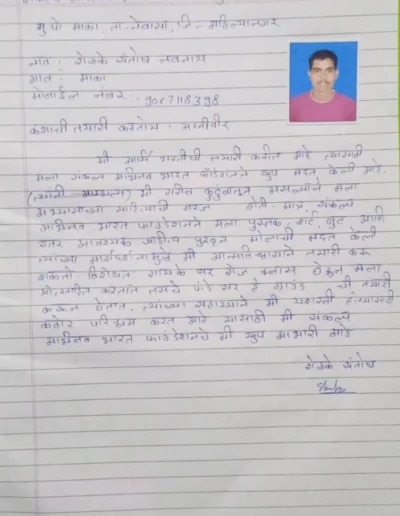 मु.पो माका, ता-नेवासा, जि- अहिल्यानगर
नाव : शेळके संतोष नवनाथ
गाव : माका
मोबाईल नंबर :
कशाची तयारी करतोय : अग्नीवीर
मी आर्मि भरतीची तयारी करीत आहे त्यासाठी
मला संकल्प अभिनव भारत फाउंडेशनने खुप मदत केली आहे.
मी गरीब कुटुंबातून असल्याने मला
अभ्यासाच्या साहित्याची गरज होती. मात्र, संकल्प
अभिनव भारत फाउंडेशनने मला पुस्तक, शर्ट, बुट आणि
इतर आवश्यक साहित्य पुरवून मोलाची मदत केली
त्यांच्या मार्गदर्शनामुळे मी आत्मविश्वासाने तयारी करू
शकतो विशेषतः, गायके सर रोज क्लास घेऊन मला
प्रोत्साहित करतात तसेच पांडे सर हे ग्राउंड ची तयारी
करून घेतात. त्यांच्या सहाय्याने मी यशस्वी होण्यासाठी
कठोर परिश्रम करत आहे यासाठी मी संकल्प
अभिनव भारत फाउंडेशनचे मी खुप आभारी आहे
शेळके संतोष